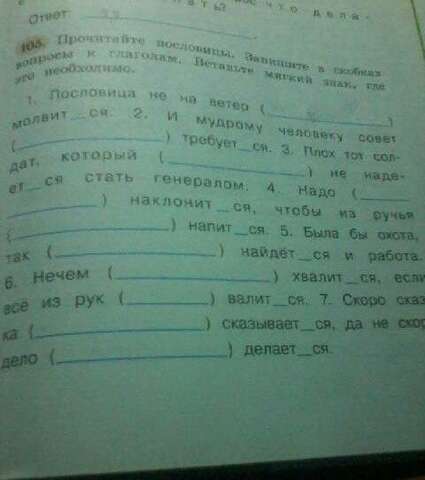 что дела-
ать?
Ответ:
105. Прочитайте пословицы. Запишите в скобках
вопросы к глаголам. Вставьте мягкий знак, где
это необходимо.
1. Пословица не на ветер (____)
молвит__ся. 2. И мудрому человеку совет
(____) требует__ся. 3. Плох тот сол-
дат, который (____) не наде-
ет__ся стать генералом. 4. Надо (____
____) наклонит__ся, чтобы из ручья
(____) напит__ся. 5. Была бы охота,
так (____) найдёт__ся и работа.
6. Нечем (____) хвалит__ся, если
всё из рук (____) валит__ся. 7. Скоро сказ
ка (____) сказывает__ся, да не скор
дело (____) делает__ся.